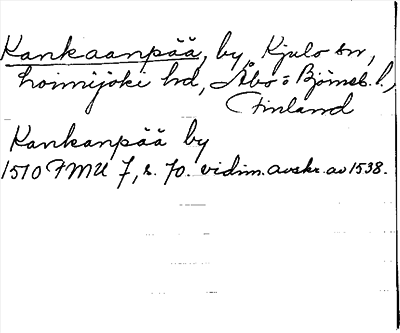 Kankaanpää, by, Kjulo sn,
Loimijoki hd, Åbo o Björneb. l.,
Finland
Kankanpää by
1510 FMU 7, s. 70. vidim. avskr. av 1538.